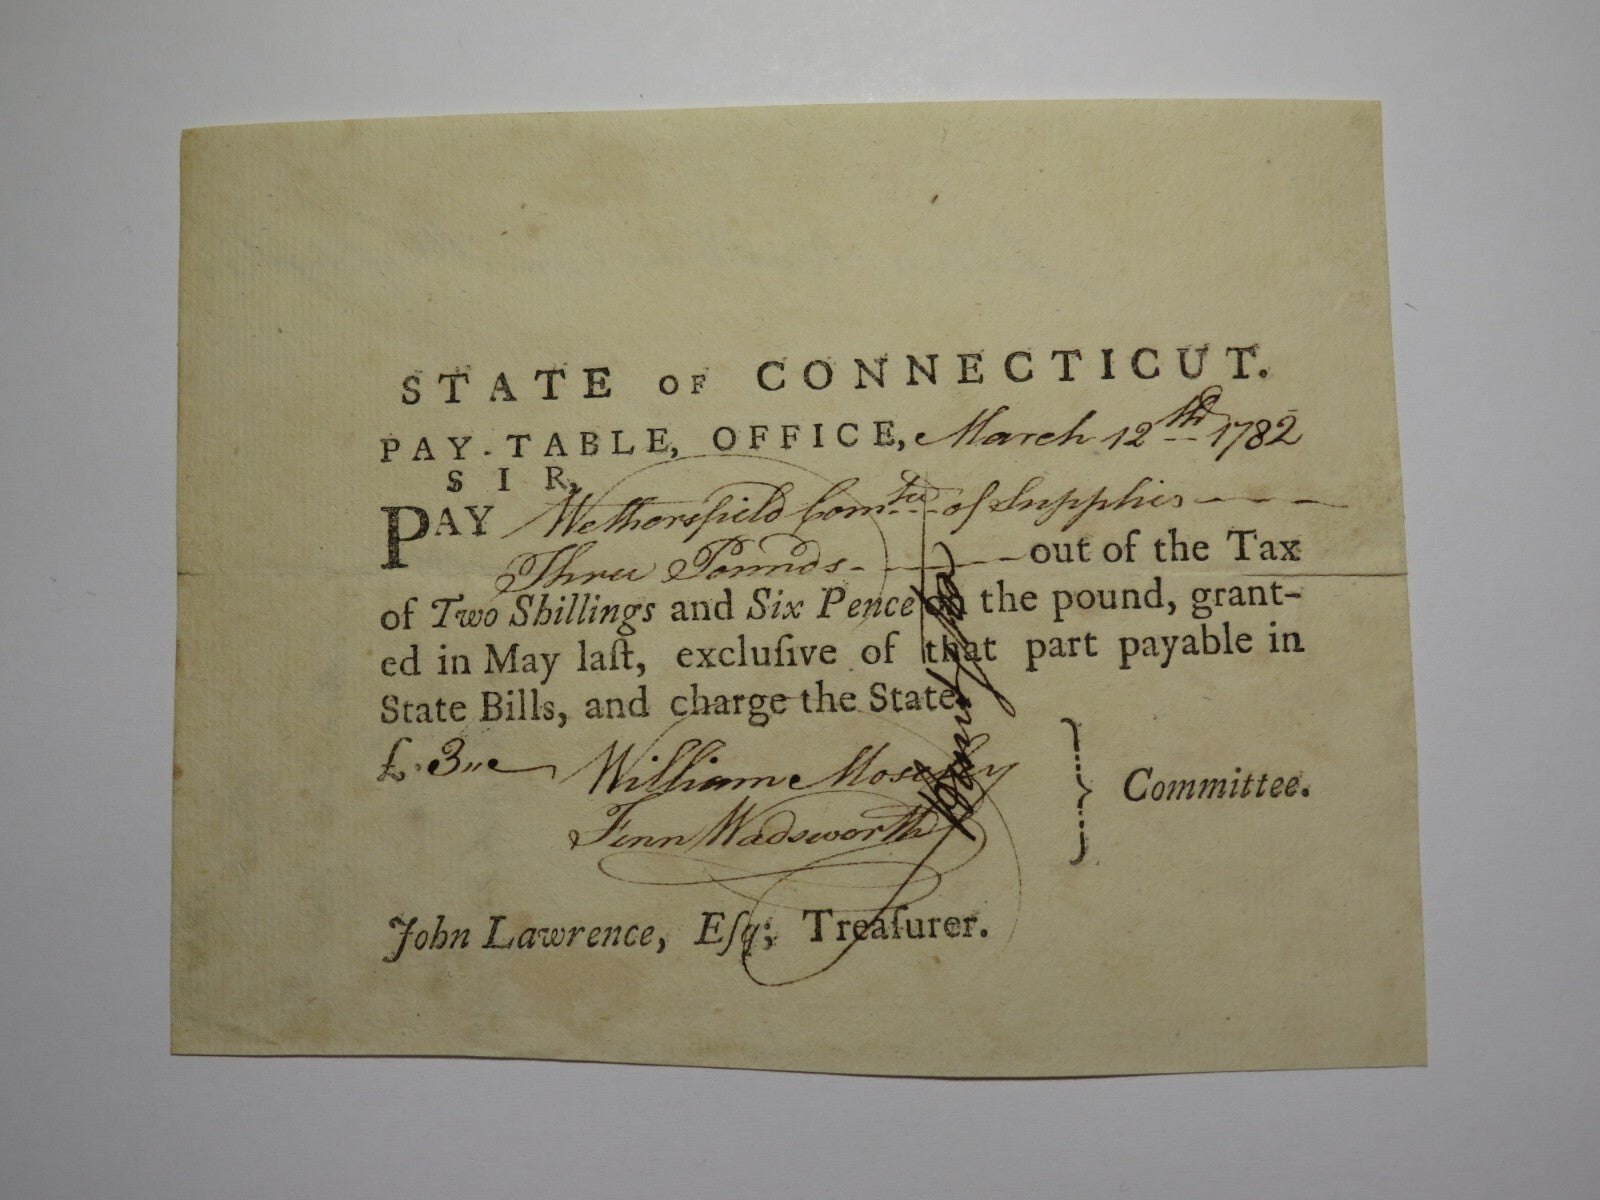 STATE OF CONNECTICUT.
PAY-TABLE, OFFICE, March 12th 1782
SIR,
PAY Wethersfield Comtee of Supplies
Three Pounds out of the Tax
of Two Shillings and Six Pence on the pound, grant-
ed in May laſt, excluſive of that part payable in
State Bills, and charge the State.
£.3
William Moseley
Fenn Wadsworth
Committee.
John Lawrence, Eſq; Treaſurer.